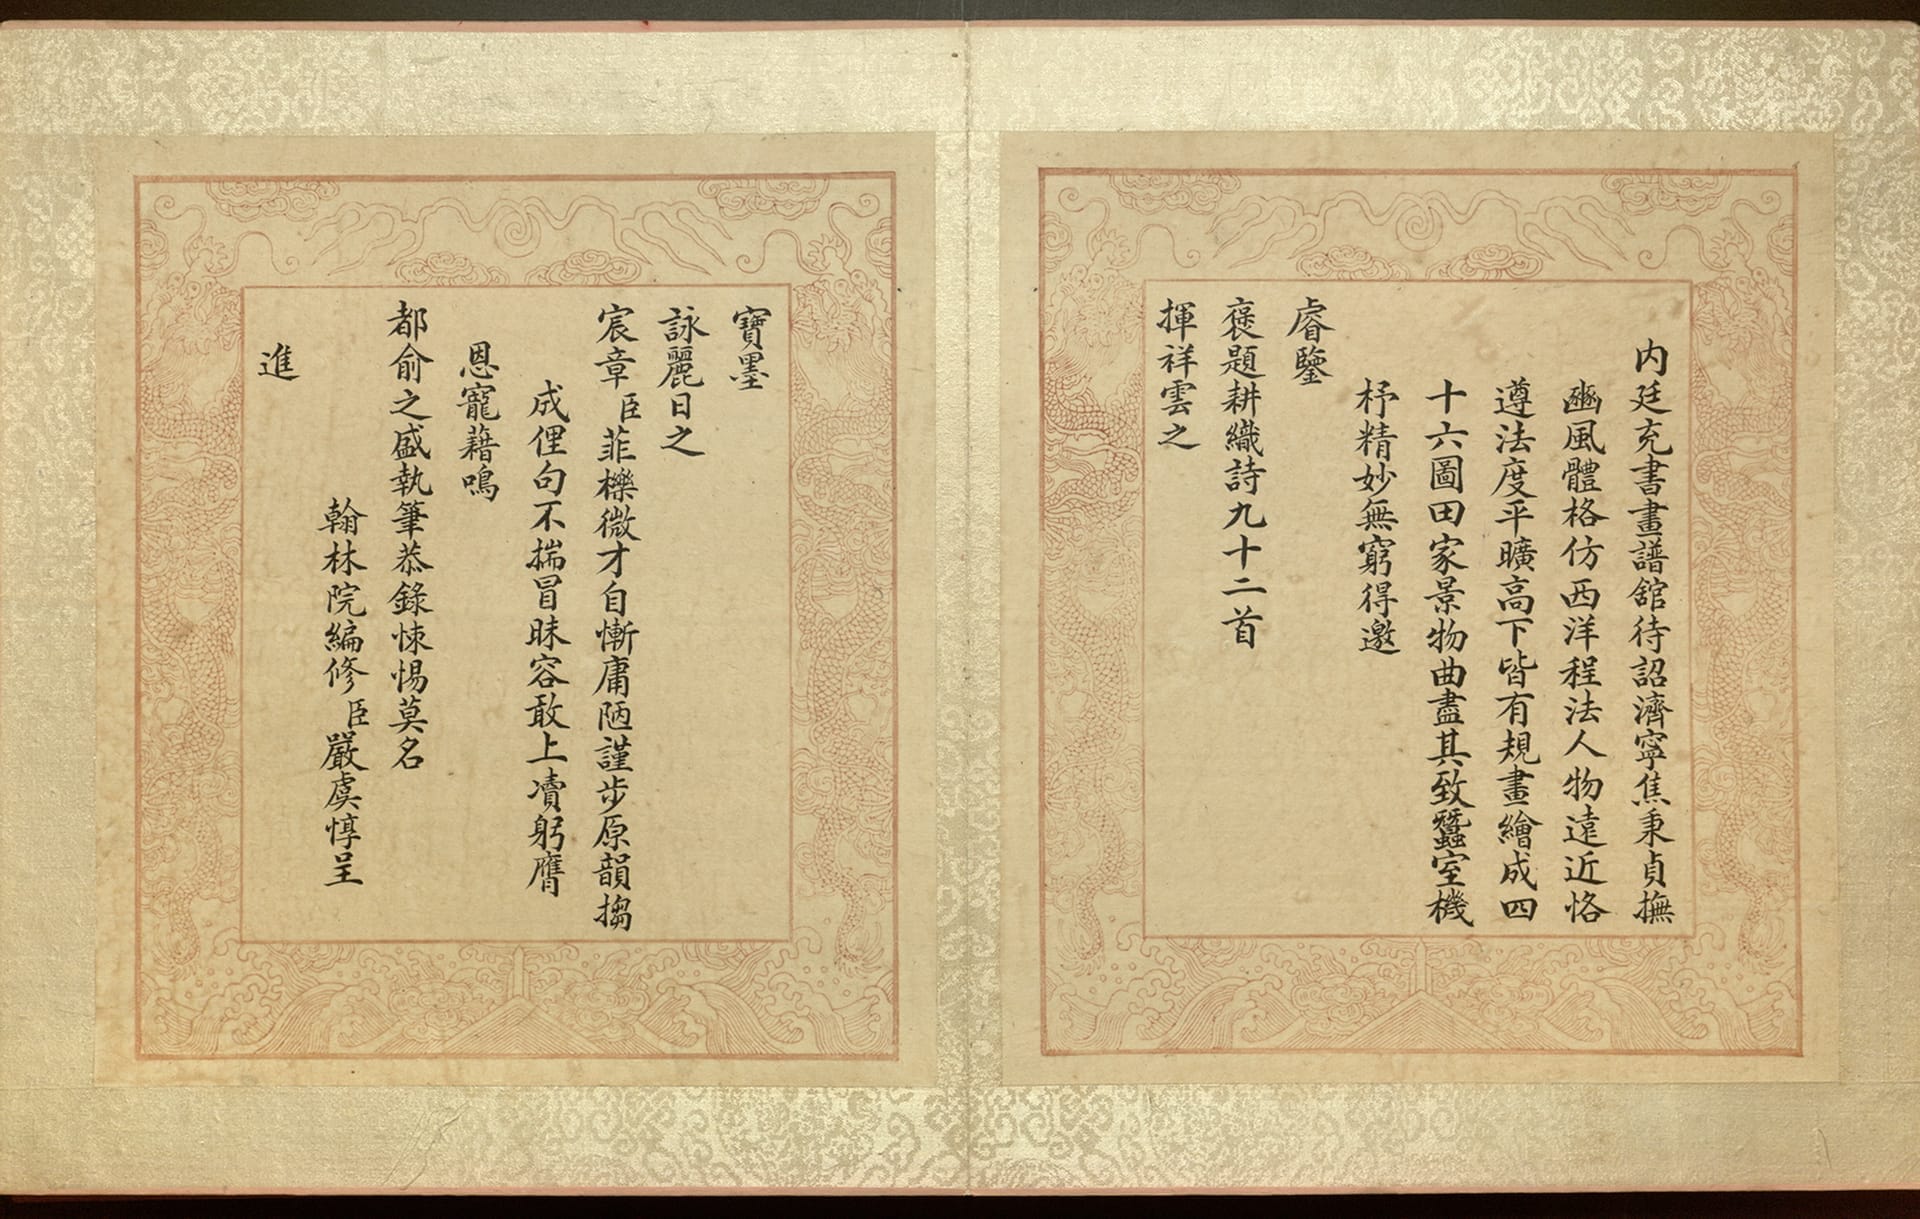 內廷充書畫譜舘待詔濟寧焦秉貞撫
豳風體格仿西洋程法人物遠近恪
遵法度平曠高下皆有規畫繪成四
十六圖田家景物曲盡其致蠶室機
杼精妙無窮得邀
睿鑒
襃題耕織詩九十二首
揮祥雲之
寶墨
詠麗日之
宸章臣菲櫟微才自慚庸陋謹步原韻搊
成俚句不揣冒昧容敢上凟躬膺
恩寵藉鳴
都俞之盛執筆恭錄悚惕莫名
翰林院編修臣嚴虞惇呈
進